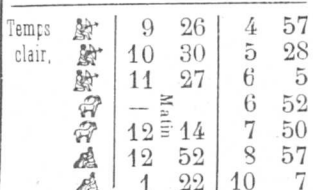 Temps 9 26 4 57
clair, 10 30 5 28
11 27 6 5
— Matin 6 52
12 14 7 50
12 52 8 57
1 22 10 7